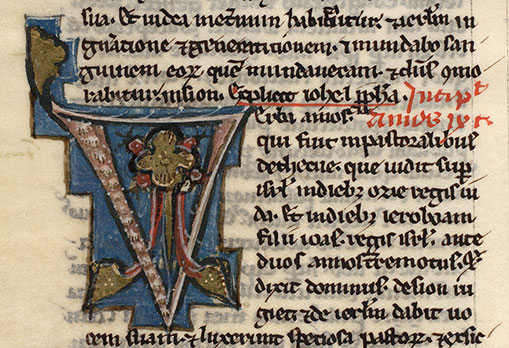 sua. Et iudea inet̾num habitabitur. ⁊ ierlm̄ in
gn̄ratione ⁊ generationem. ⁊ mundabo san
guinem eoꝝ quē mundaueram. ⁊ dn̄s ꝯmo
rabitur in sion. Explicit iohel ꝓpħa. Incip̄t
Verba amos. amos
qui fuit in pastoralibus
de thecue. que uidit sup̄
isrl̄ in dieb; ozie regis iu
da. Et in dieb; ieroboam
filii ioas. regis isrl̄. ante
duos annos t̾remotus. Et
dixit dominus. de sion ru
giet. ⁊ de ierlm̄ dabit uo
cem suam. ⁊ luxerunt speciosa pastoꝝ. ⁊ exsic